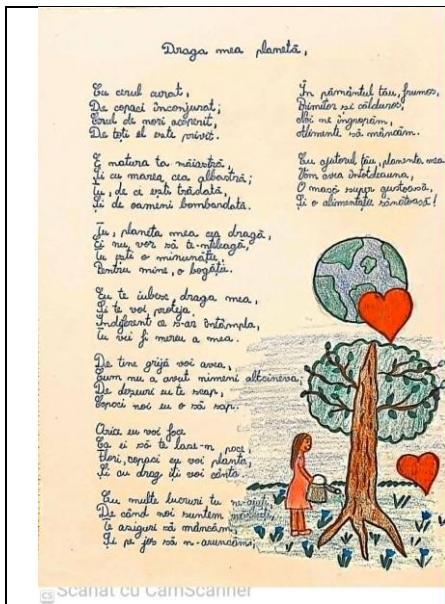 Draga mea planetă,
Cu cerul curat,
De copaci înconjurat;
Cerul de nori acoperit,
De toți el este privit.
E natura ta măiastră,
Și cu marea cea albastră;
Tu, de ce ești trădată,
Și de oameni bombardată.
Tu, planeta mea cea dragă,
Ei nu vor să te-nțeleagă,
Tu ești o minunăție,
Pentru mine, o bogăție.
Eu te iubesc, draga mea,
Și te voi proteja,
Indiferent ce s-ar întâmpla,
Tu vei fi mereu a mea.
De tine grijă voi avea,
Cum nu a avut nimeni altcineva,
De deșeuri eu te scap,
Copaci noi eu o să sap.
Orice eu voi face
Ca ei să te lase-n pace,
Flori, copaci eu voi planta,
Și cu drag îți voi cânta.
Cu multe lucruri tu ne-ajuți
De când noi suntem
Te asiguri să mâncăm,
Și pe jos să n-aruncăm;
În pământul tău, frumos,
Primitor și călduros,
Noi ne îngropăm,
Alimente să mâncăm.
Cu ajutorul tău, planeta mea
Vom avea întotdeauna,
O masă super gustoasă,
Și o alimentație sănătoasă!
CS Scanat cu CamScanner